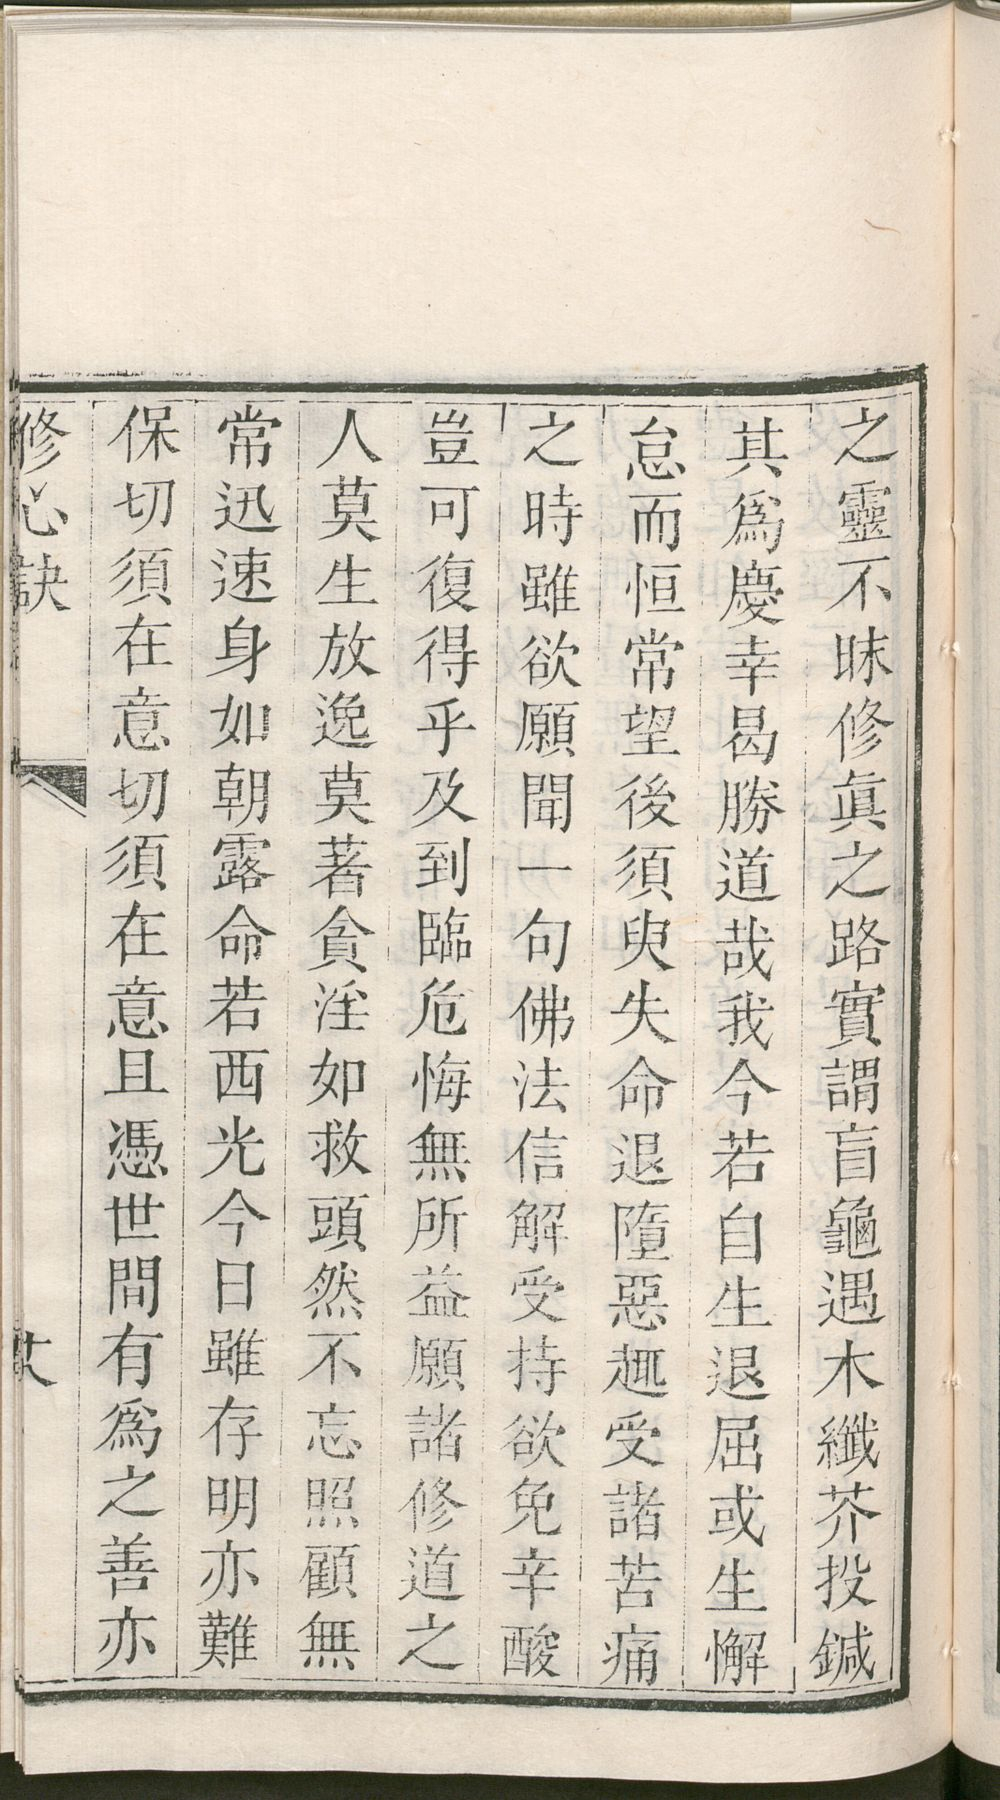 之靈不昧修眞之路實謂盲龜遇木纖芥投鍼
其爲慶幸曷勝道哉我今若自生退屈或生懈
怠而恒常望後須臾失命退墮惡趣受諸苦痛
之時雖欲願聞一句佛法信解受持欲免辛酸
豈可復得乎及到臨危悔無所益願諸修道之
人莫生放逸莫著貪淫如救頭然不忘照顧無
常迅速身如朝露命若西光今日雖存明亦難
保切須在意切須在意且憑世間有爲之善亦
修心訣